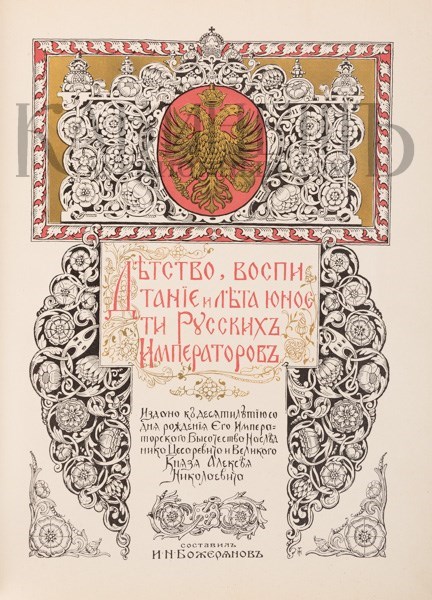 Дѣтство, воспи
танiе и лѣта юнос
ти Русскихъ
Императоровъ
Издано къ десятилѣтiю со
дня рожденiя Его Импера-
торского Высочества Наслѣд
ника Цесаревича и Великого
Князя Алексѣя
Николаевича
составилъ
И·Н·Божеряновъ